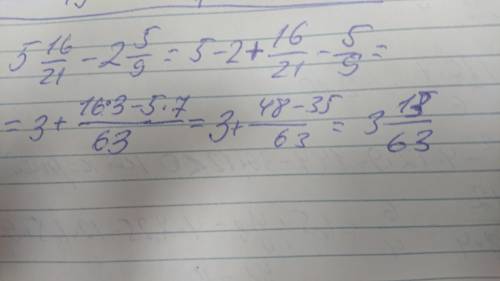 5 16/21 - 2 5/9 = 5 - 2 + 16/21 - 5/9 =
= 3 + (16·3 - 5·7)/63 = 3 + (48 - 35)/63 = 3 13/63